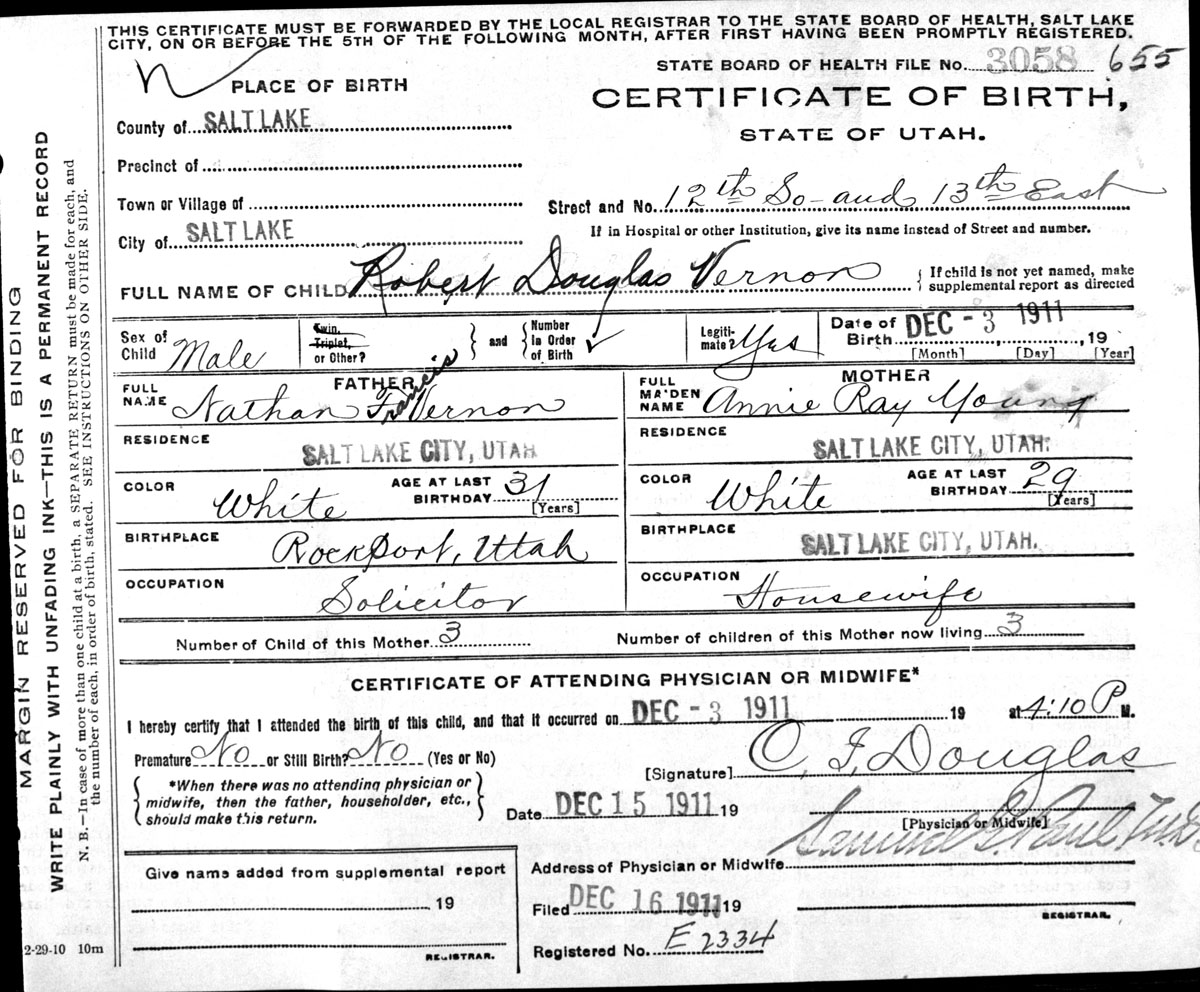 THIS CERTIFICATE MUST BE FORWARDED BY THE LOCAL REGISTRAR TO THE STATE BOARD OF HEALTH, SALT LAKE
CITY, ON OR BEFORE THE 5TH OF THE FOLLOWING MONTH, AFTER FIRST HAVING BEEN PROMPTLY REGISTERED.
STATE BOARD OF HEALTH FILE No. 3058 655
PLACE OF BIRTH
CERTIFICATE OF BIRTH,
STATE OF UTAH.
County of SALT LAKE
Precinct of
Town or Village of
Street and No. 12th So - and 13th East
City of SALT LAKE
If in Hospital or other Institution, give its name instead of Street and number.
FULL NAME OF CHILD Robert Douglas Vernon
If child is not yet named, make
supplemental report as directed
Sex of
Child Male
Twin,
Triplet,
or Other?
and
Number
in Order
of Birth ✓
Legiti-
mate? Yes
Date of
Birth DEC - 3 1911, 19
[Month] [Day] [Year]
FATHER
FULL
NAME Nathan Francis Vernon
RESIDENCE
SALT LAKE CITY, UTAH
COLOR White
AGE AT LAST
BIRTHDAY 31
[Years]
BIRTHPLACE Rockport, Utah
OCCUPATION Solicitor
MOTHER
FULL
MAIDEN
NAME Annie Ray Young
RESIDENCE
SALT LAKE CITY, UTAH.
COLOR White
AGE AT LAST
BIRTHDAY 29
[Years]
BIRTHPLACE SALT LAKE CITY, UTAH.
OCCUPATION Housewife
Number of Child of this Mother 3
Number of children of this Mother now living 3
CERTIFICATE OF ATTENDING PHYSICIAN OR MIDWIFE*
I hereby certify that I attended the birth of this child, and that it occurred on DEC - 3 1911 19 at 4:10 P M.
Premature No or Still Birth? No (Yes or No)
[Signature] C. F. Douglas
*When there was no attending physician or
midwife, then the father, householder, etc.,
should make this return.
Date DEC 15 1911 19
[Physician or Midwife]
Samuel G. Paul M.D.
Give name added from supplemental report
19
REGISTRAR.
Address of Physician or Midwife
Filed DEC 16 1911 19
REGISTRAR.
Registered No. E 2334
2-29-10 10m
MARGIN RESERVED FOR BINDING
WRITE PLAINLY WITH UNFADING INK—THIS IS A PERMANENT RECORD
N. B.—In case of more than one child at a birth, a SEPARATE RETURN must be made for each, and
the number of each, in order of birth, stated. SEE INSTRUCTIONS ON OTHER SIDE.